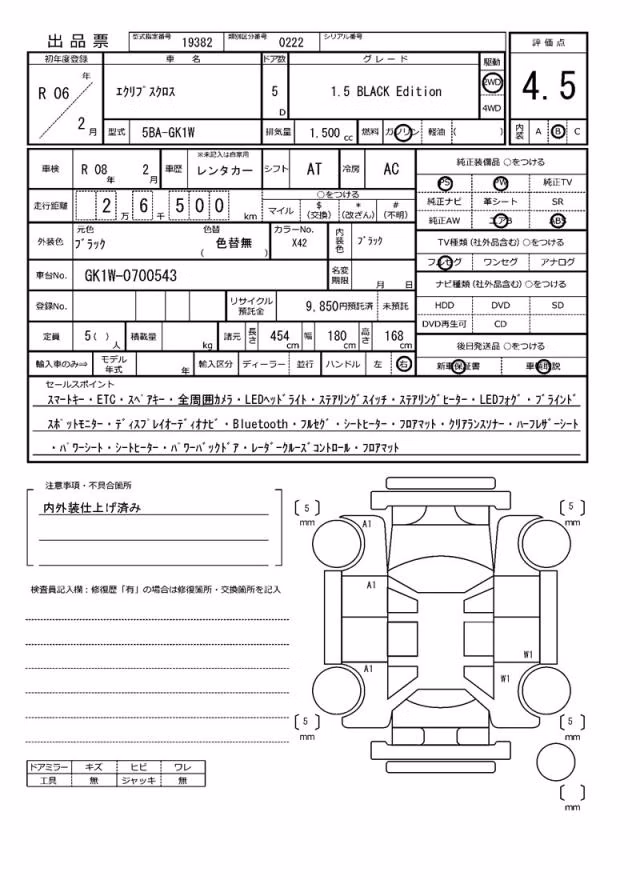 出品票 型式指定番号 19382 類別区分番号 0222 シリアル番号
初年度登録 車名 ドア数 グレード 駆動 評価点
R 06 年 2 月 ｴｸﾘﾌﾟｽｸﾛｽ 5 D 1.5 BLACK Edition 2WD 4WD 4.5
型式 5BA-GK1W 排気量 1.500 cc 燃料 ガソリン 軽油 ( ) 内装 A B C
車検 R 08 年 2 月 車歴 ※未記入は自家用 レンタカー シフト AT 冷房 AC
純正装備品 ○をつける
PS PW 純正TV
純正ナビ 革シート SR
純正AW エアB ABS
走行距離 2 万 6 千 5 0 0 km
○をつける
マイル $ (交換) * (改ざん) # (不明)
TV種類 (社外品含む) ○をつける
フルセグ ワンセグ アナログ
外装色 元色 ﾌﾞﾗｯｸ 色替 色替無 ( ) カラーNo. X42 内装色 ﾌﾞﾗｯｸ
車台No. GK1W-0700543 名変期限 月 日
ナビ種類 (社外品含む) ○をつける
HDD DVD SD
DVD再生可 CD
登録No. リサイクル預託金 9,850円預託済 未預託
定員 5 ( ) 人 積載量 kg 諸元 長さ 454 cm 幅 180 cm 高さ 168 cm
後日発送品 ○をつける
新車保証書 車輌取説
輸入車のみ⇒ モデル年式 年 輸入区分 ディーラー 並行 ハンドル 左 右
セールスポイント
ｽﾏｰﾄｷｰ・ETC・ｽﾍﾟｱｷｰ・全周囲ｶﾒﾗ・LEDﾍｯﾄﾞﾗｲﾄ・ｽﾃｱﾘﾝｸﾞｽｲｯﾁ・ｽﾃｱﾘﾝｸﾞﾋｰﾀｰ・LEDﾌｫｸﾞ・ﾌﾞﾗｲﾝﾄﾞ
ｽﾎﾟｯﾄﾓﾆﾀｰ・ﾃﾞｨｽﾌﾟﾚｲｵｰﾃﾞｨｵﾅﾋﾞ・Bluetooth・ﾌﾙｾｸﾞ・ｼｰﾄﾋｰﾀｰ・ﾌﾛｱﾏｯﾄ・ｸﾘｱﾗﾝｽｿﾅｰ・ﾊｰﾌﾚｻﾞｰｼｰﾄ
・ﾊﾟﾜｰｼｰﾄ・ｼｰﾄﾋｰﾀｰ・ﾊﾟﾜｰﾊﾞｯｸﾄﾞｱ・ﾚｰﾀﾞｰｸﾙｰｽﾞｺﾝﾄﾛｰﾙ・ﾌﾛｱﾏｯﾄ
注意事項・不具合箇所
内外装仕上げ済み
検査員記入欄：修復歴「有」の場合は修復箇所・交換箇所を記入
5 mm
5 mm
A1
A1
W1
A1
W1
5 mm
5 mm
mm
ドアミラー キズ ヒビ ワレ
工具 無 ジャッキ 無